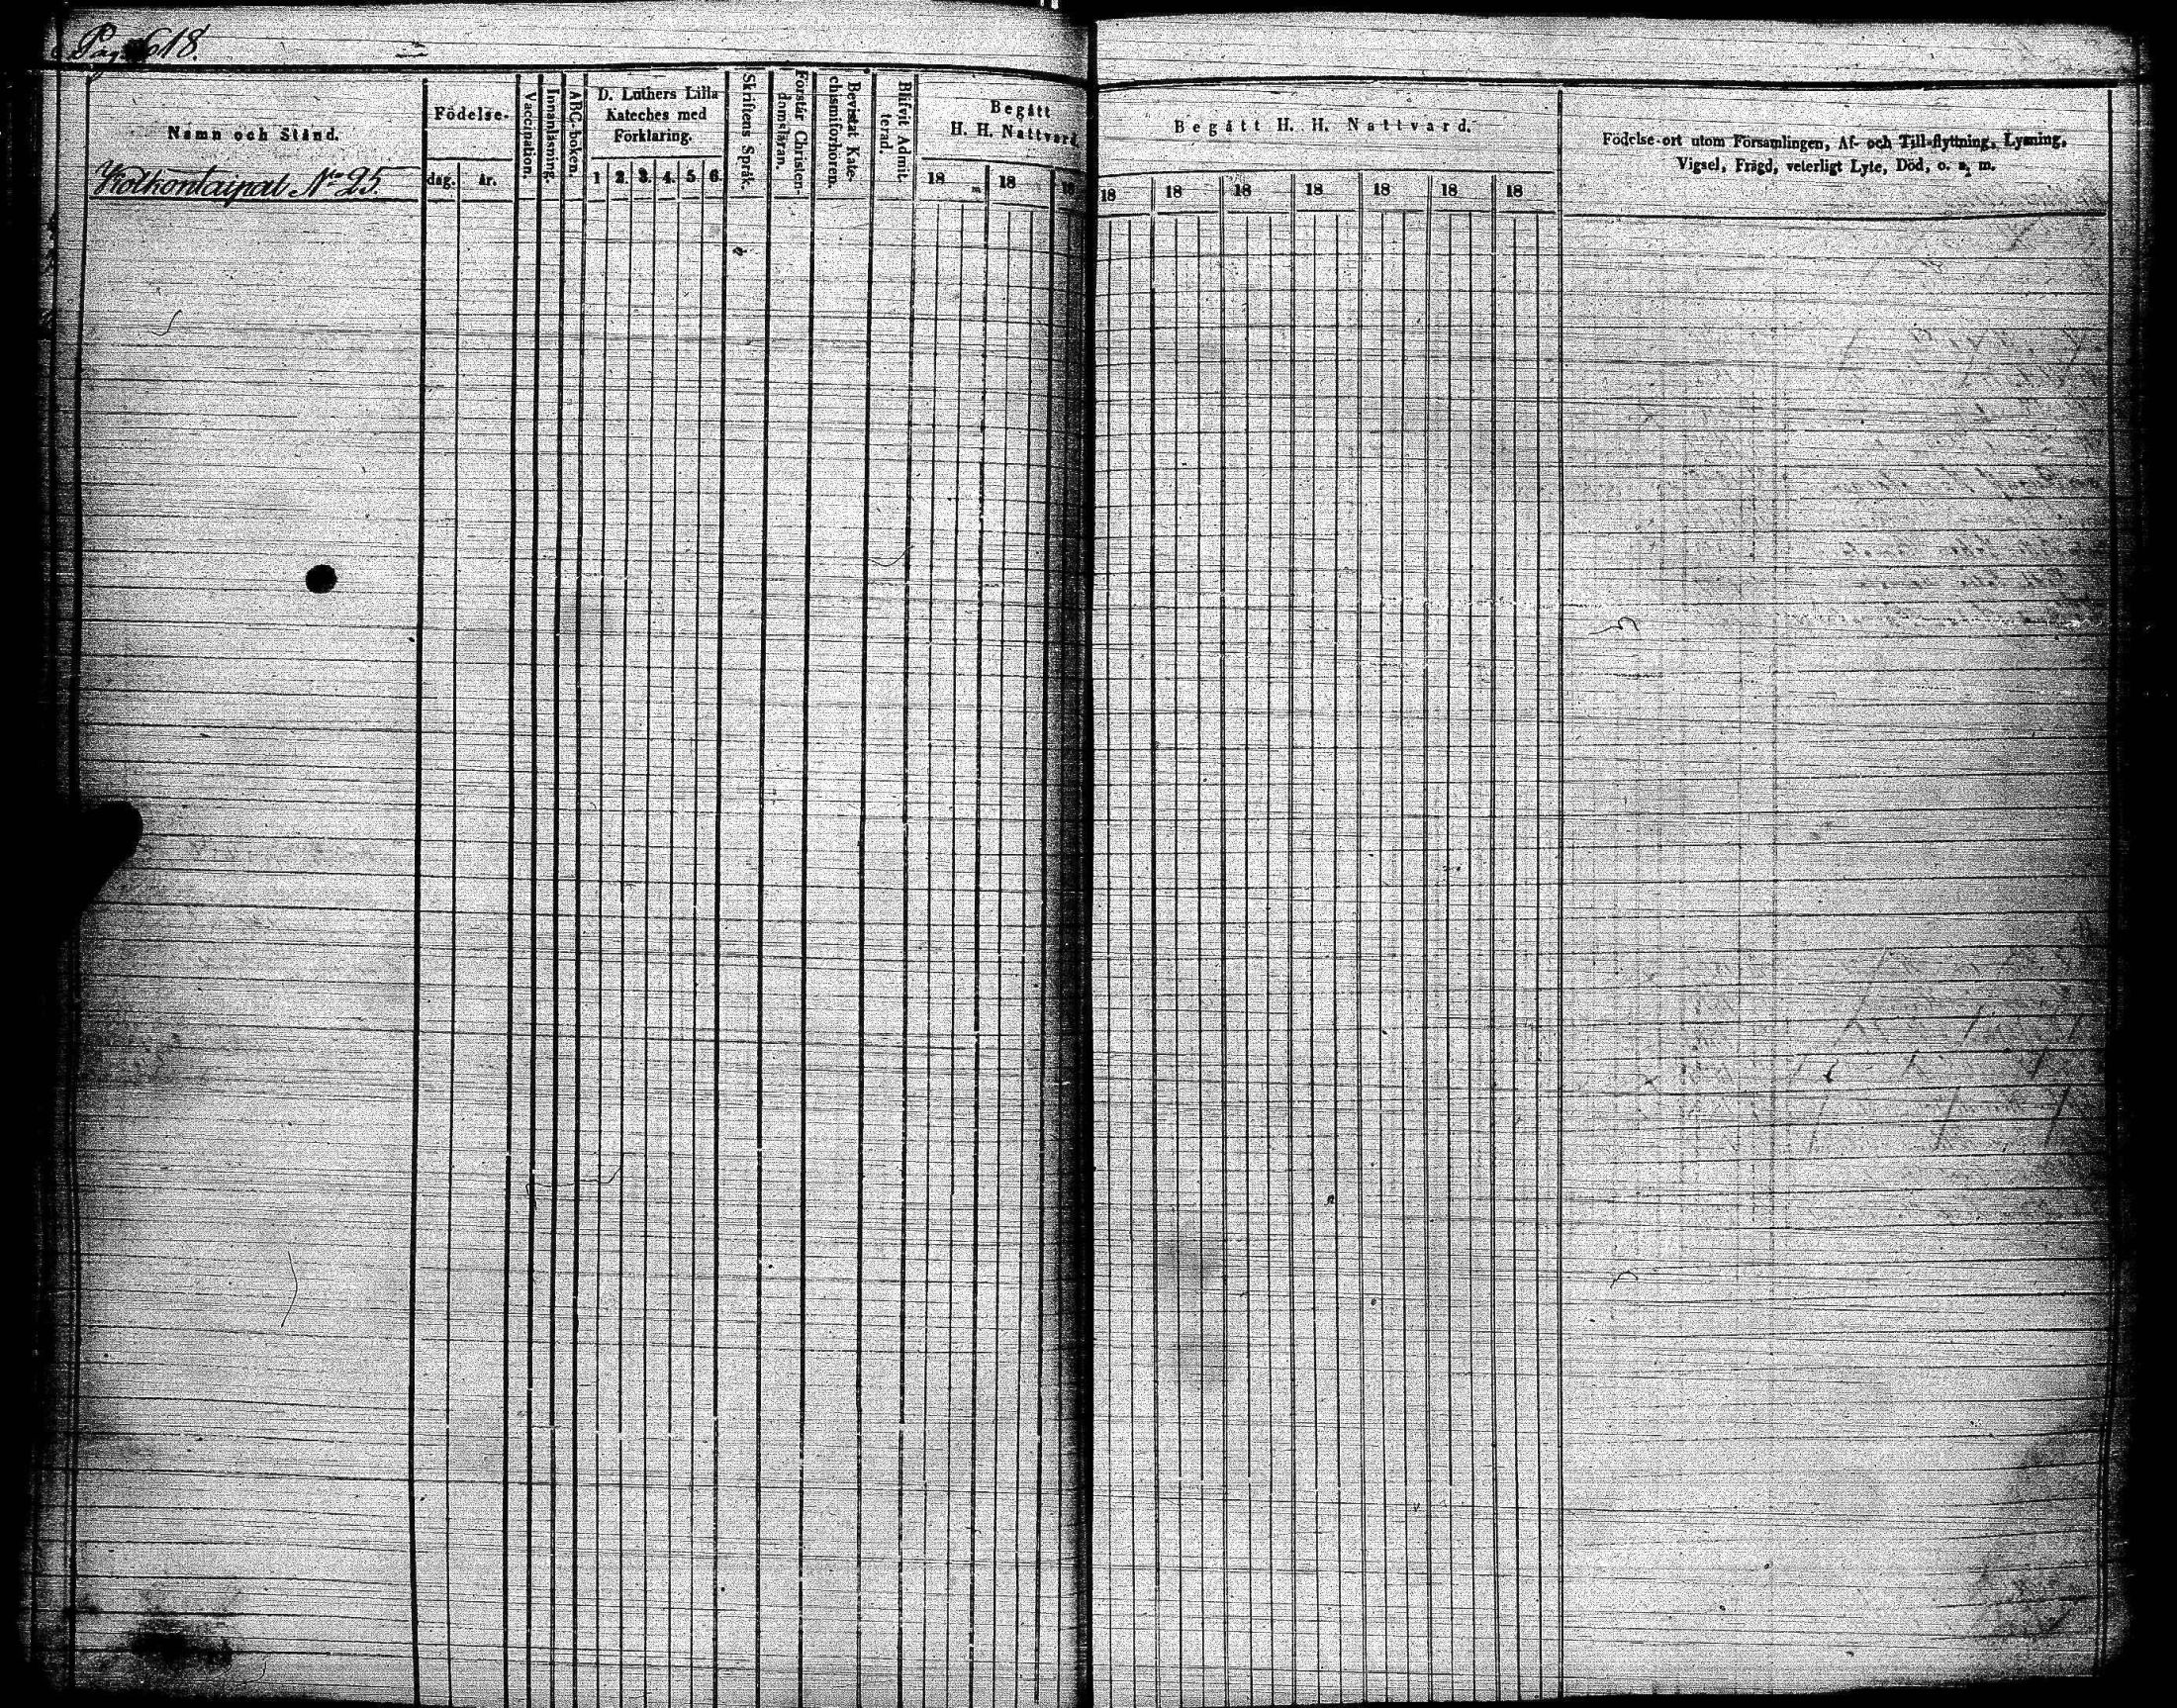 Pag. 618.
Namn och Stånd.
Kolkontaipal No 25.
Födelse-
dag.
år.
Vaccination.
Innanläsning.
ABC-boken.
D. Luthers Lilla
Kateches med
Förklaring.
1 2. 3. 4. 5. 6.
Skriftens Språk.
Förstår Christen-
domsläran.
Bevistat Kate-
chismiförhören.
Blifvit Admit-
terad.
Begått
H. H. Nattvard.
18 18 18
Begått H. H. Nattvard.
18 18 18 18 18 18 18
Födelse-ort utom Församlingen, Af- och Till-flyttning, Lysning,
Vigsel, Frägd, veterligt Lyte, Död, o. s. m.